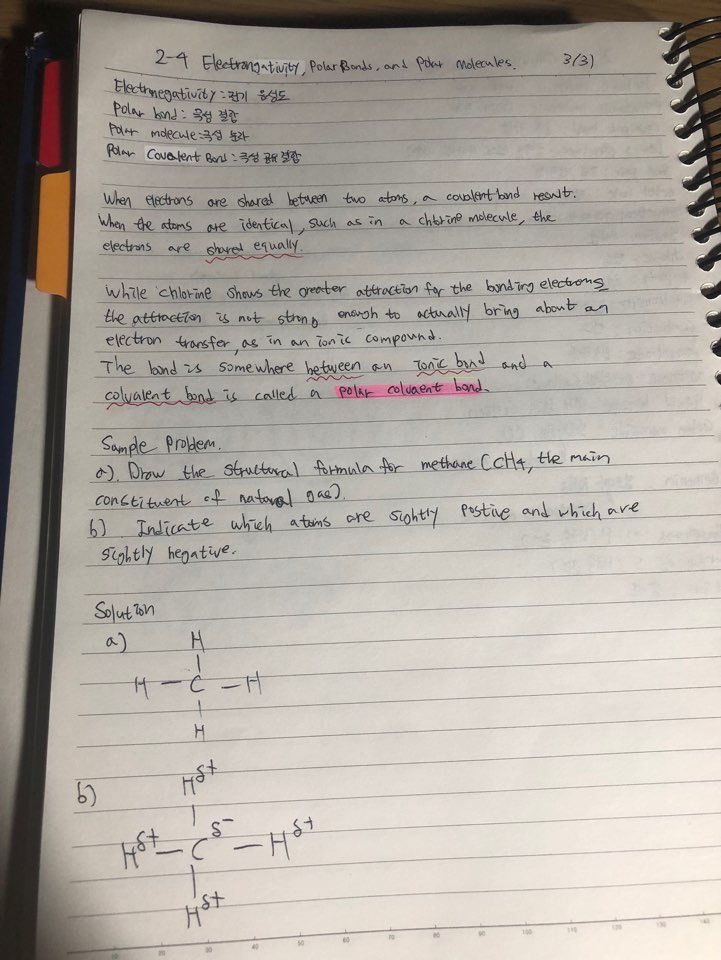 2-4 Electrongativity, Polar Bonds, and Polar Molecules. 3/3)
Electronegativity : 전기 음성도
Polar bond : 극성 결합
Polar molecule : 극성 분자
Polar Covalent Bond : 극성 공유 결합
When electrons are shared between two atoms, a covalent bond result.
When the atoms are identical, such as in a chlorine molecule, the
electrons are shared equally.
While chlorine shows the greater attraction for the bonding electrons
the attraction is not strong enough to actually bring about an
electron transfer, as in an ionic compound.
The bond is somewhere between an ionic bond and a
colvalent bond is called a polar colvaent bond.
Sample Problem.
a). Draw the structural formula for methane (CH4, the main
constituent of natural gas).
b) Indicate which atoms are sightly postive and which are
sightly negative.
Solution
a)
H
H — C — H
H
b)
H δ+
H δ+ — C δ- — H δ+
H δ+
10 20 30 40 50 60 70 80 90 100 110 120 130 140